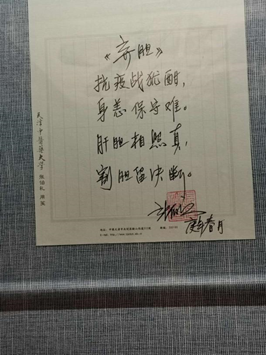 《弃胆》
抗疫战犹酣，
身恙保守难。
肝胆相照真，
割胆留决断。
张伯礼
庚子春月
天津中医药大学 张伯礼 用笺